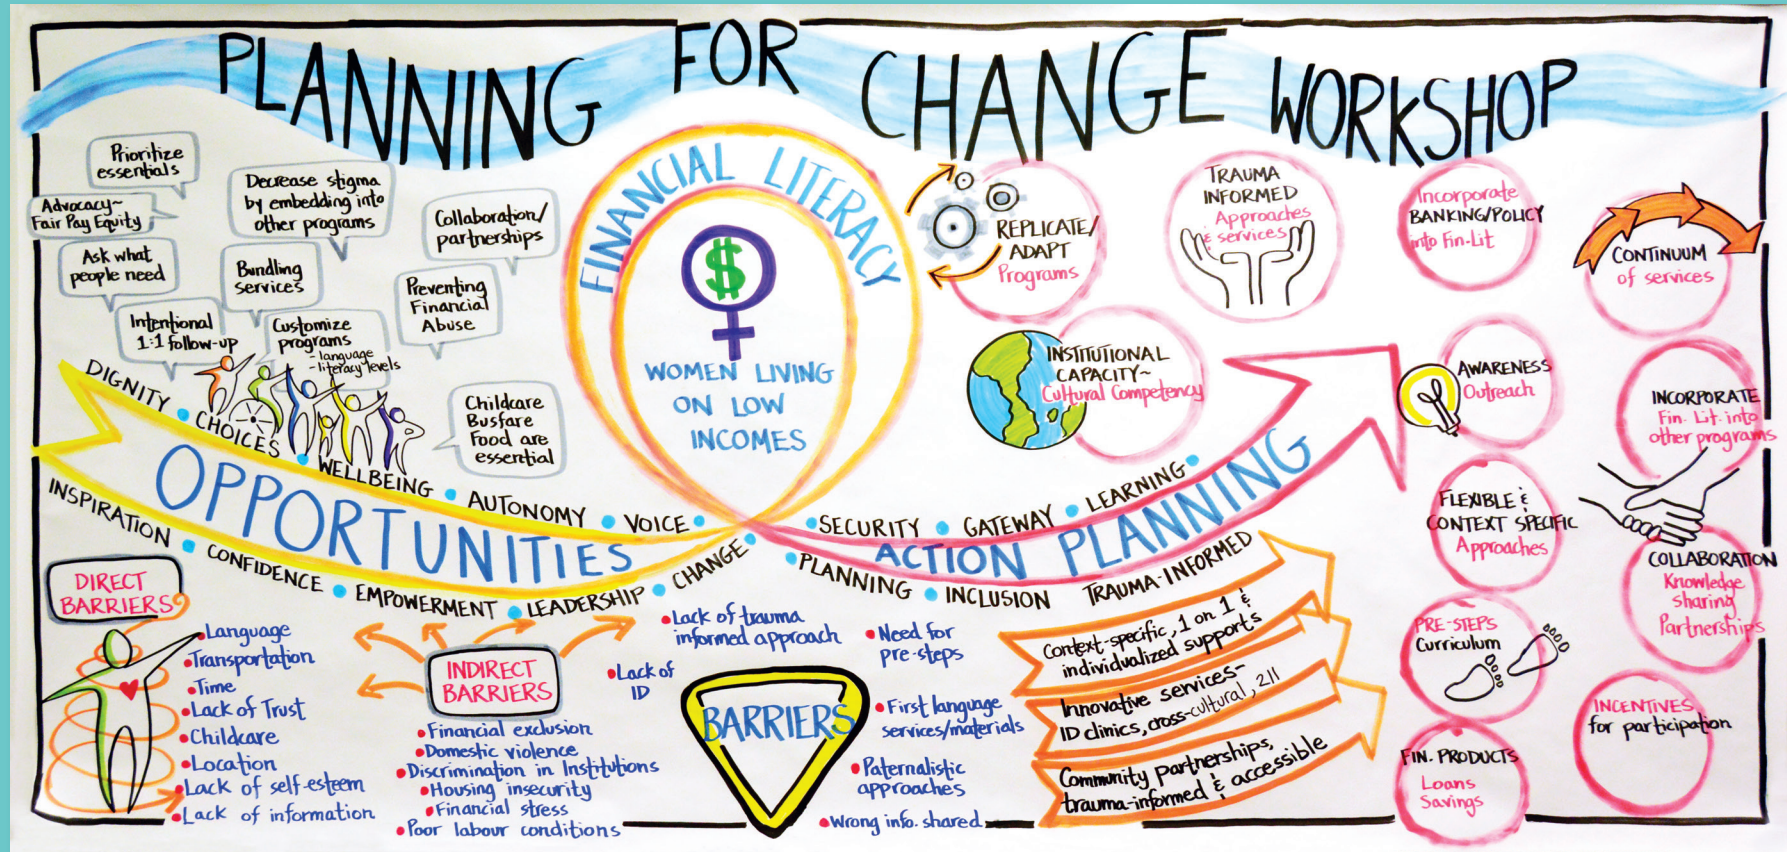 PLANNING FOR CHANGE WORKSHOP
Prioritize
essentials
Advocacy~
Fair Pay Equity
Ask what
people need
Decrease stigma
by embedding into
other programs
Bundling
services
Collaboration/
partnerships
Preventing
Financial
Abuse
Intentional
1:1 follow-up
Customize
programs
- language
- literacy levels
Childcare
Busfare
Food are
essential
FINANCIAL LITERACY
$
WOMEN LIVING
ON LOW
INCOMES
REPLICATE/
ADAPT
Programs
TRAUMA
INFORMED
Approaches
& services
Incorporate
BANKING/POLICY
into Fin-Lit
CONTINUUM
of services
INSTITUTIONAL
CAPACITY~
Cultural Competency
AWARENESS
Outreach
INCORPORATE
Fin. Lit. into
other programs
FLEXIBLE &
CONTEXT SPECIFIC
Approaches
COLLABORATION
Knowledge
Sharing
Partnerships
PRE-STEPS
Curriculum
INCENTIVES
for participation
FIN. PRODUCTS
Loans
Savings
DIGNITY • CHOICES • WELLBEING • AUTONOMY • VOICE •
OPPORTUNITIES
INSPIRATION • CONFIDENCE • EMPOWERMENT • LEADERSHIP • CHANGE •
• SECURITY • GATEWAY • LEARNING •
ACTION PLANNING
• PLANNING • INCLUSION TRAUMA-INFORMED
DIRECT
BARRIERS
• Language
• Transportation
• Time
• Lack of Trust
• Childcare
• Location
• Lack of self-esteem
• Lack of information
INDIRECT
BARRIERS
• Financial exclusion
• Domestic violence
• Discrimination in Institutions
• Housing insecurity
• Financial stress
• Poor labour conditions
• Lack of trauma
informed approach
• Lack of
ID
BARRIERS
• Need for
pre-steps
• First language
services/materials
• Paternalistic
approaches
• Wrong info. shared
Context-specific, 1 on 1 &
individualized supports
Innovative services-
ID clinics, cross-cultural, 211
Community partnerships,
trauma-informed & accessible